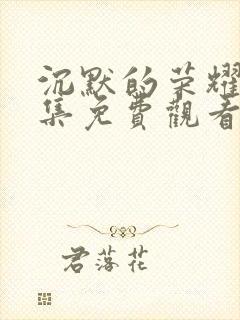 沉默的荣耀
集免費觀看
君落花